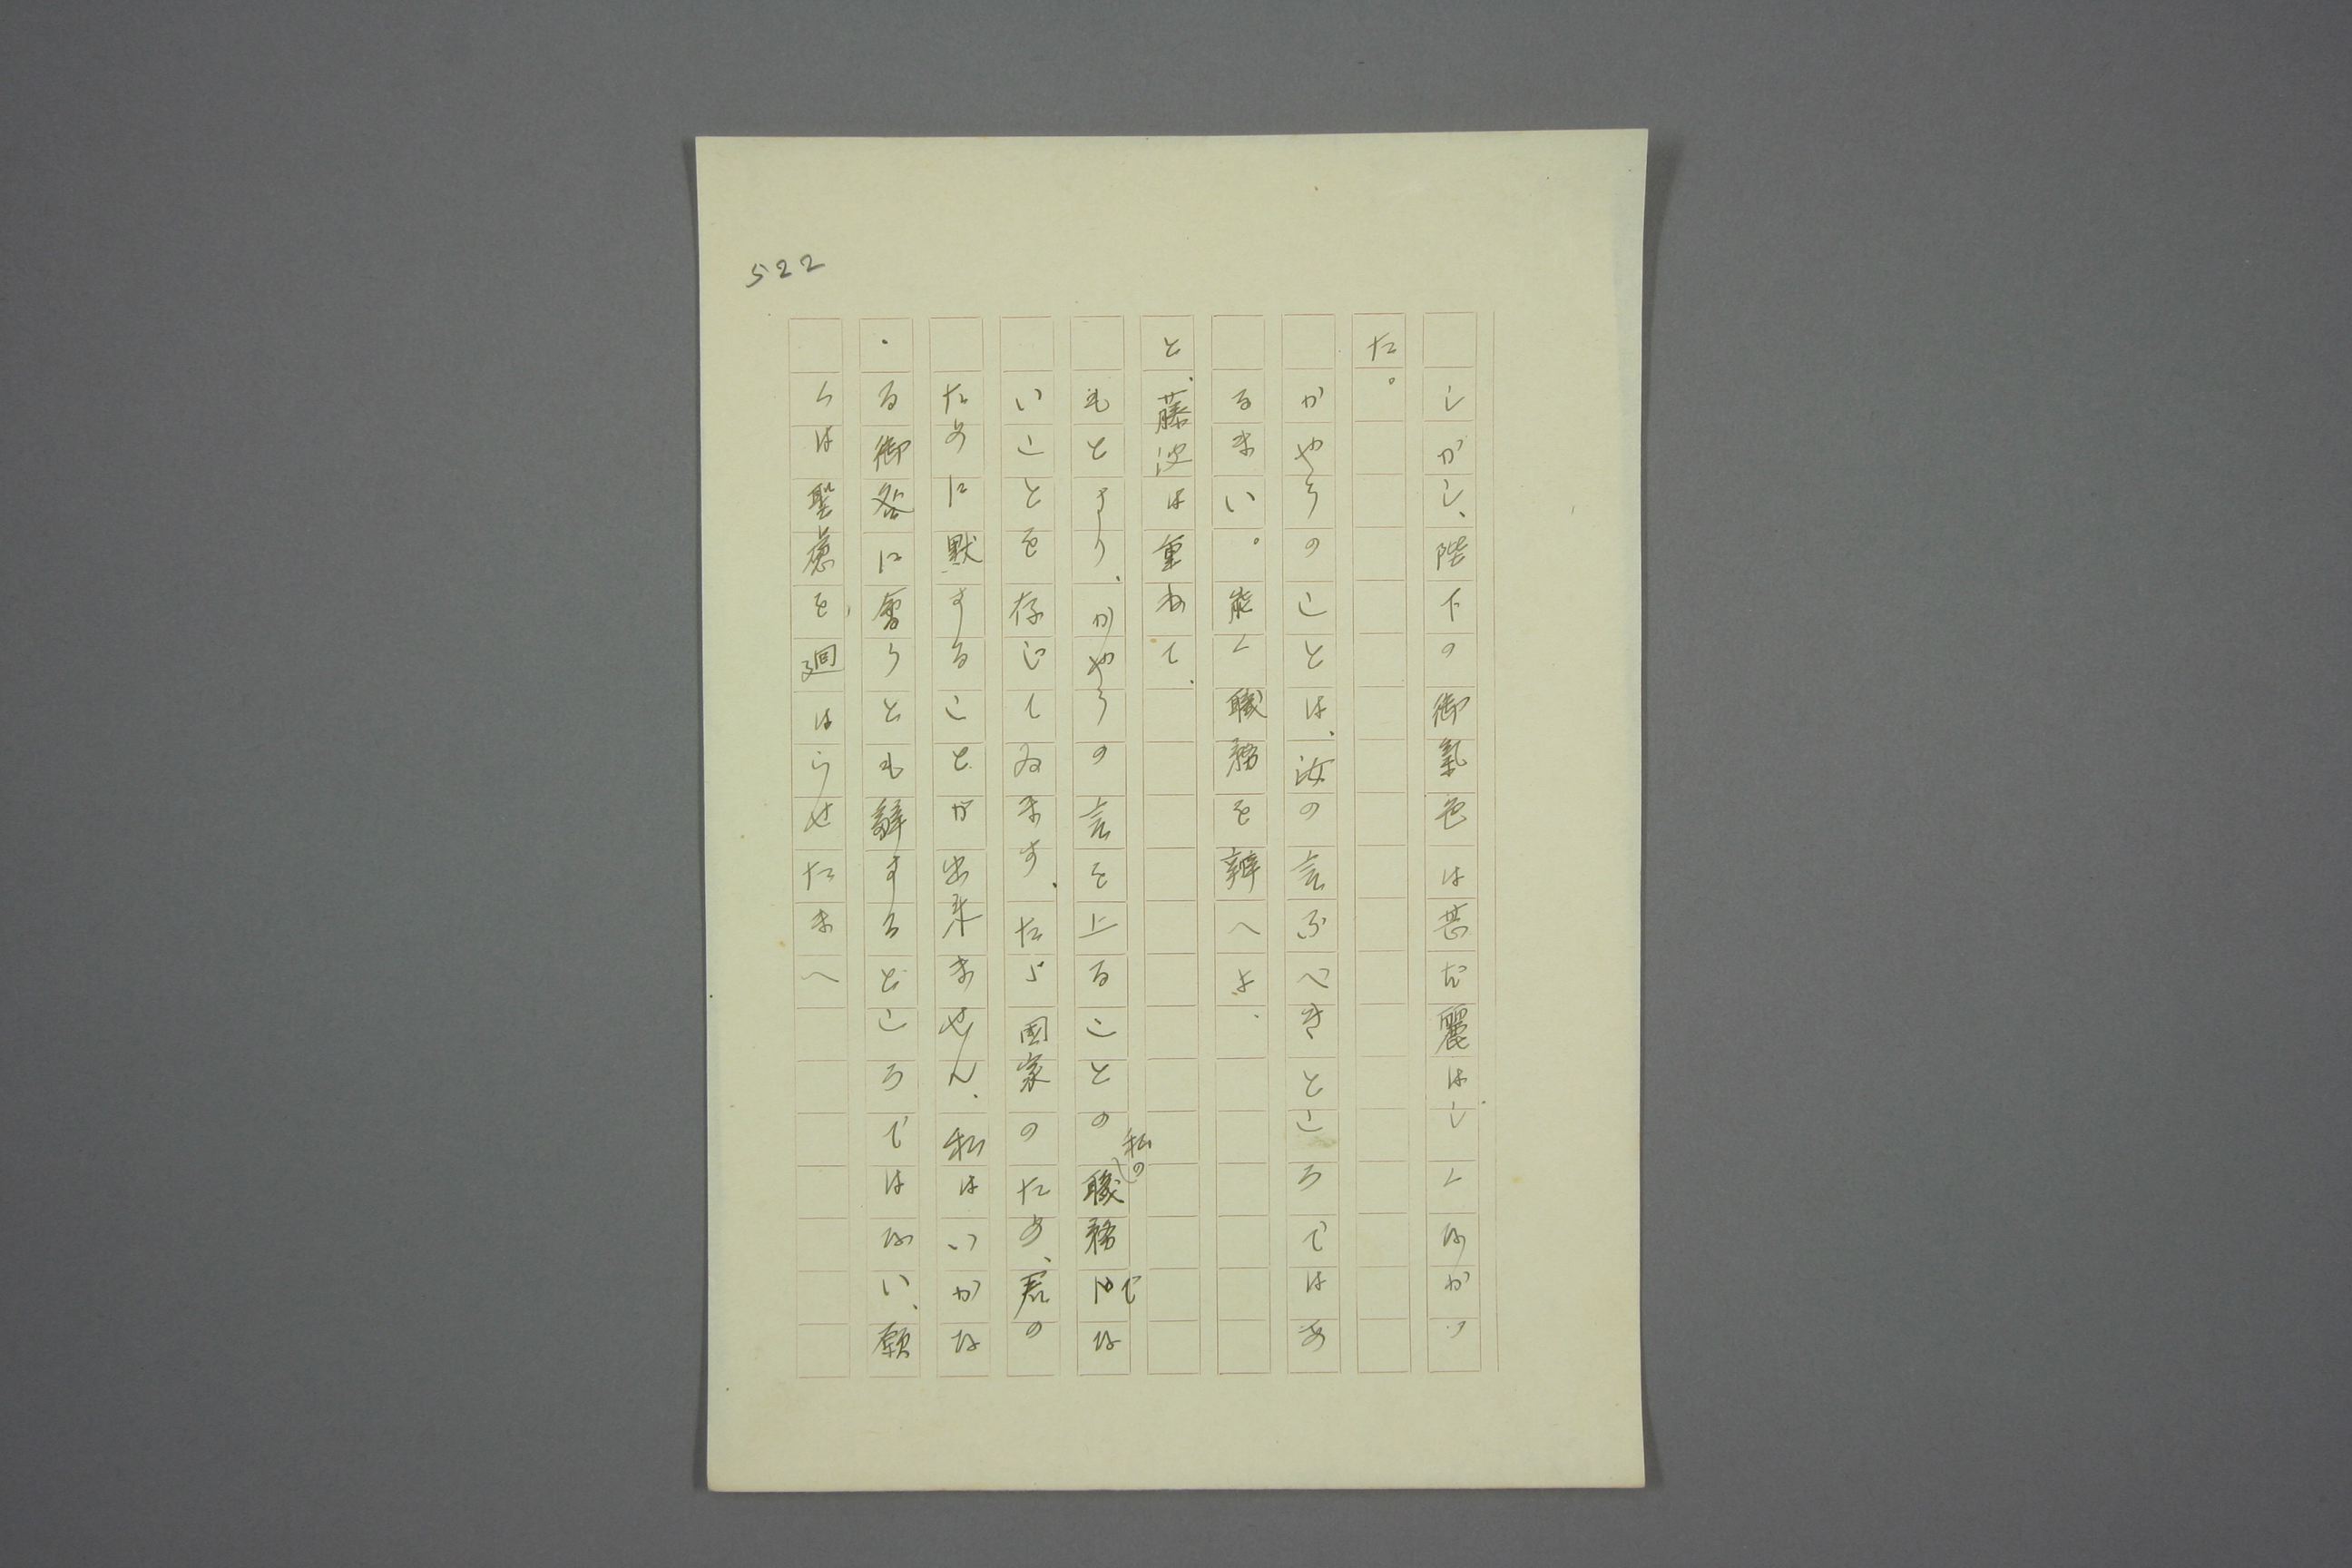 522
しかし、陛下の御氣色は甚だ麗はしくなかつ
た。
かやうのことは、汝の言ふべきところではあ
るまい。能く職務を辨へよ、
と、藤波は重ねて、
もとより、かやうの言を上ることの私の職務でな
いことを存じてゐます、たゞ国家のため、君の
ために默することが出来ません、私はいかな
る御咎に會うとも辭するところではない、願
くは聖慮を廻はらせたまへ